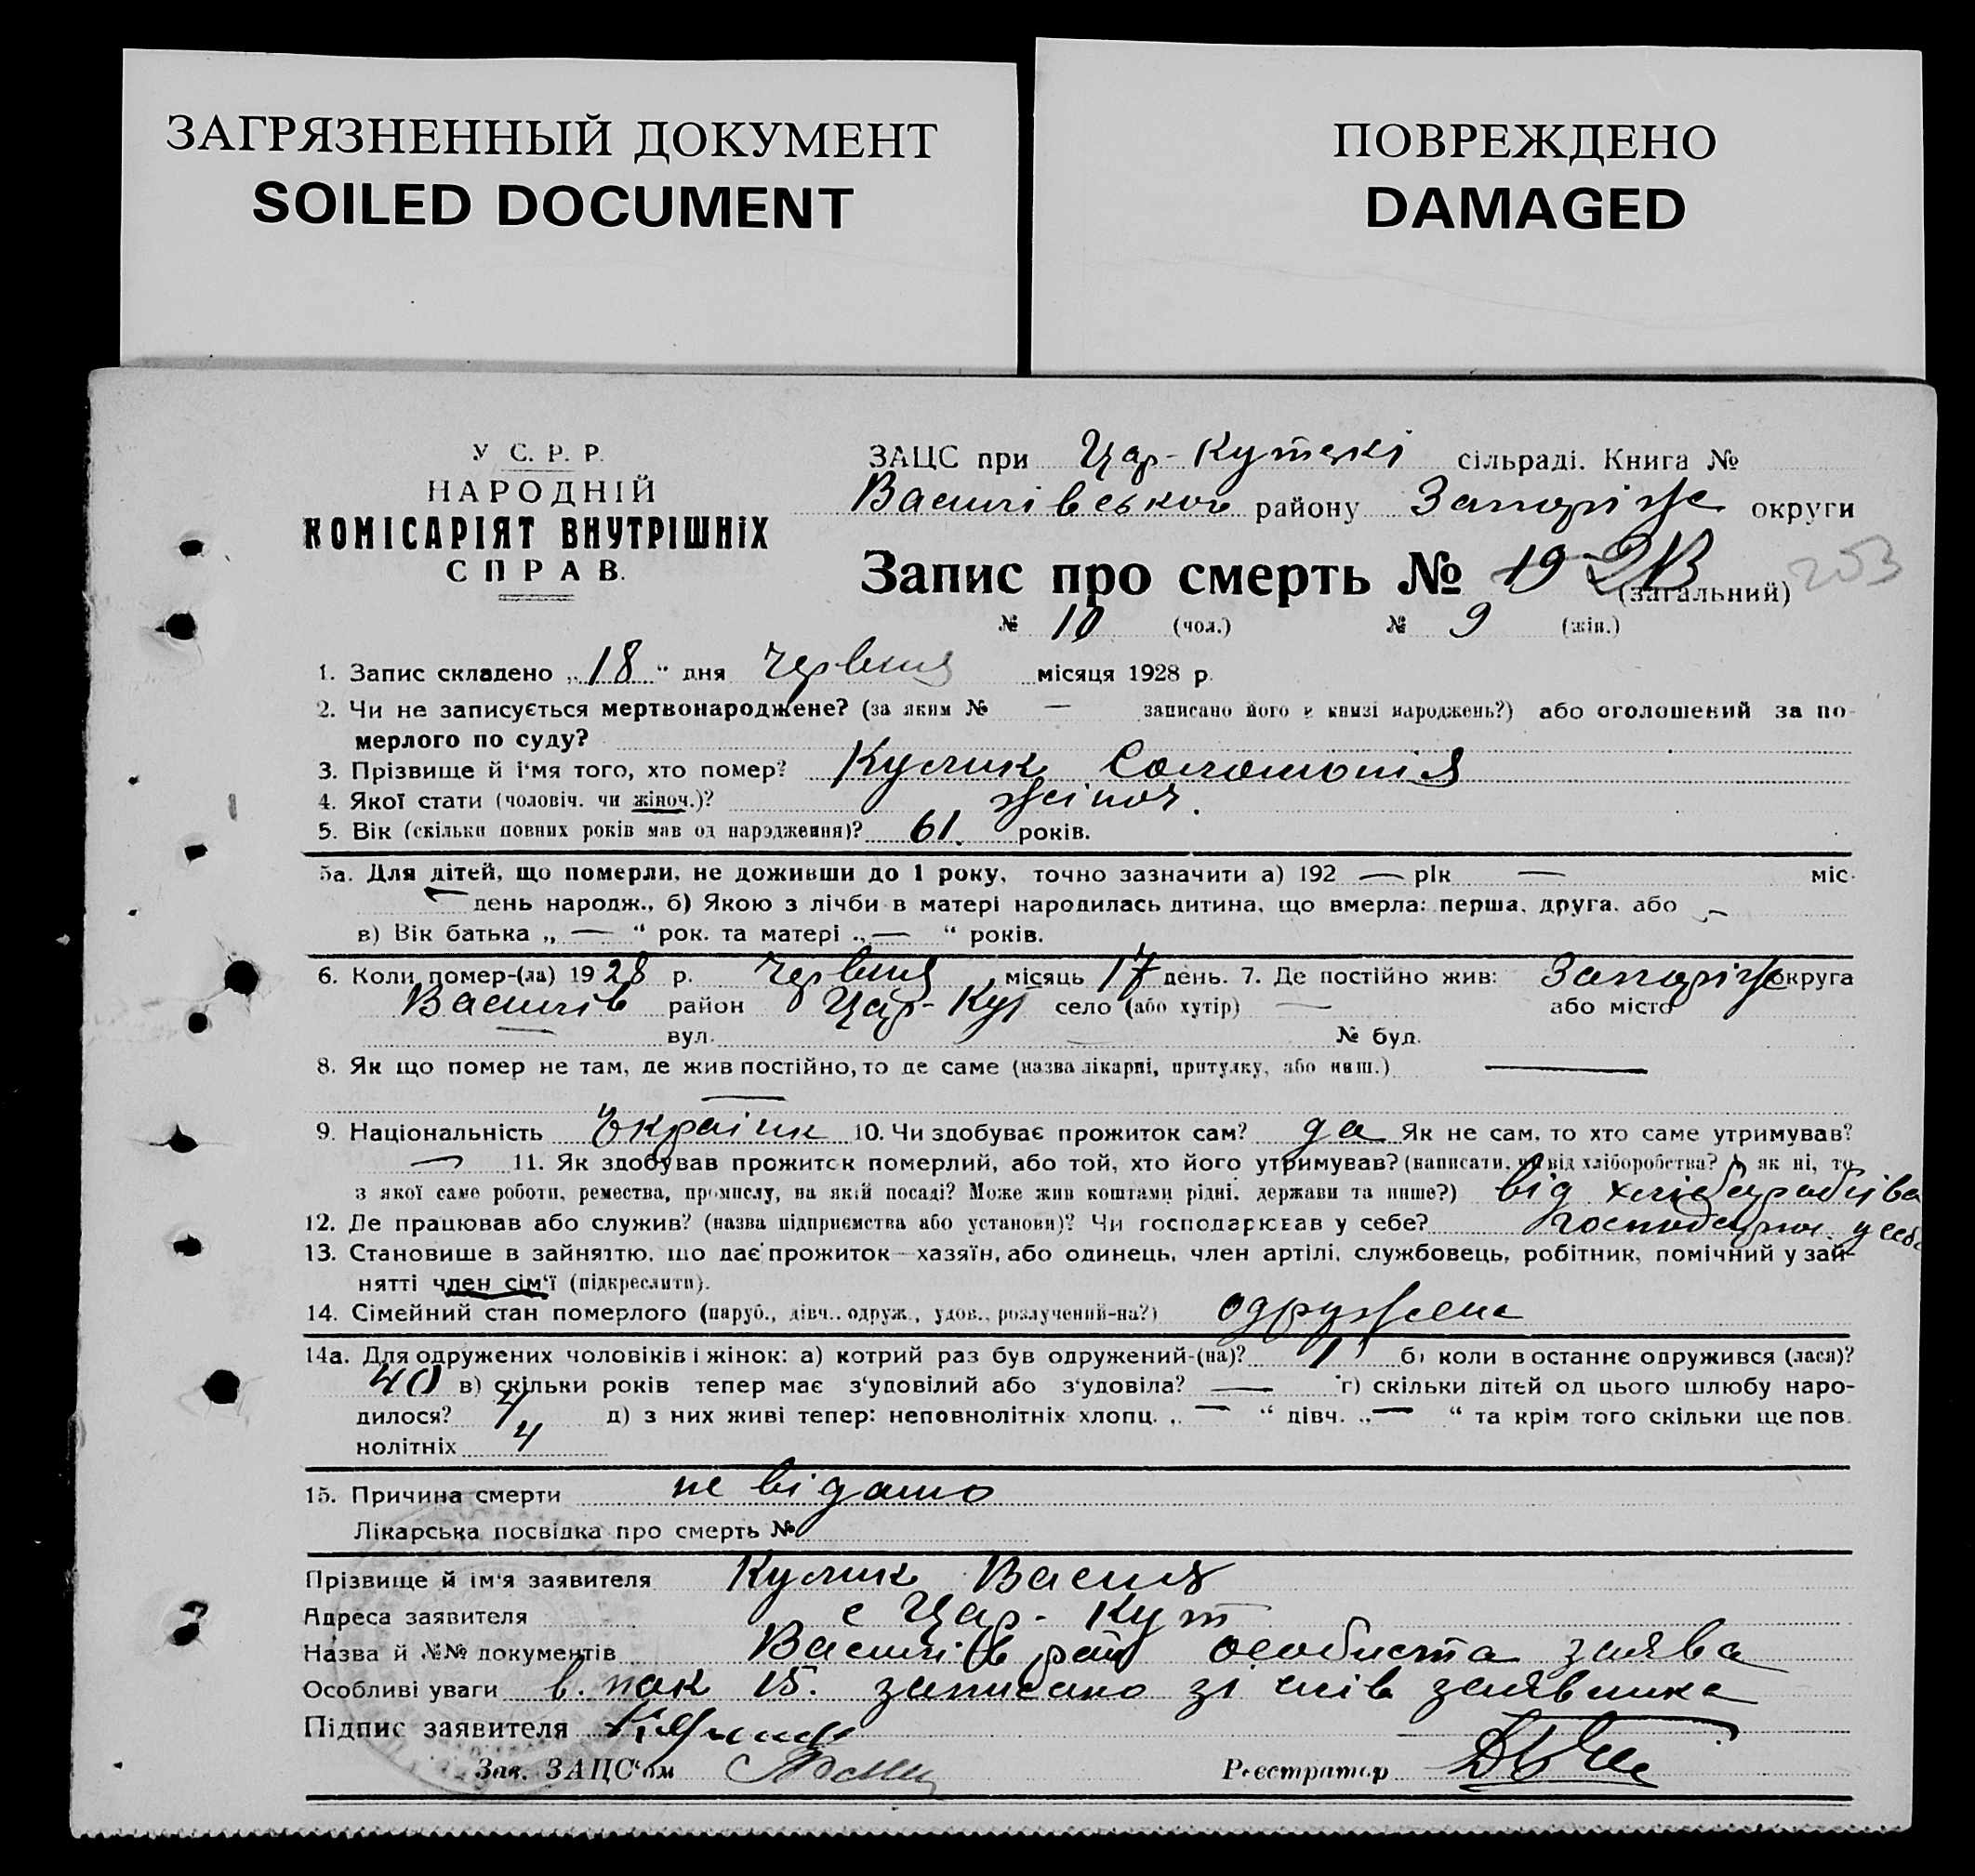 ЗАГРЯЗНЕННЫЙ ДОКУМЕНТ
SOILED DOCUMENT
ПОВРЕЖДЕНО
DAMAGED
У С. Р. Р.
НАРОДНІЙ
КОМІСАРІЯТ ВНУТРІШНІХ
СПРАВ.
ЗАЦС при Цар-Кутскі сільраді. Книга №
Василівського району Запоріж округи
Запис про смерть № 19 253
(загальний)
№ 10 (чол.) № 9 (жін.)
1. Запис складено „18“ дня червня місяця 1928 р.
2. Чи не записується мертвонароджене? (за яким № — записано його в книзі народжень?) або оголошений за по-
мерлого по суду?
3. Прізвище й ім'я того, хто помер? Кулик Соломонія
4. Якої стати (чоловіч. чи жіноч.)? жіноч.
5. Вік (скільки повних років мав од народження)? 61 років.
5а. Для дітей, що померли, не доживши до 1 року, точно зазначити а) 192 — рік — міс.
— день народж., б) Якою з лічби в матері народилась дитина, що вмерла: перша, друга, або —
в) Вік батька „ — “ рок. та матері „ — “ років.
6. Коли помер-(ла) 1928 р. червня місяць 17 день. 7. Де постійно жив: Запоріж округа
Василів район Цар-Кут село (або хутір) — або місто
— вул. — № буд.
8. Як що помер не там, де жив постійно, то де саме (назва лікарні, притулку, або инш.) —
—
9. Національність Україин 10. Чи здобуває прожиток сам? да Як не сам, то хто саме утримував?
— 11. Як здобував прожиток померлий, або той, хто його утримував? (написати, чи від хліборобства? А як ні, то
з якої саме роботи, ремества, промислу, на якій посаді? Може жив коштами рідні, держави та инше?) від хліборобства
12. Де працював або служив? (назва підприємства або установи)? Чи господарював у себе? господарюв. у себе
13. Становище в зайняттю, що дає прожиток—хазяїн, або одинець, член артілі, службовець, робітник, помічний у зай-
нятті член сім'ї (підкреслити).
14. Сімейний стан померлого (паруб., дівч., одруж., удов., розлучений-на?) одружена
14а. Для одружених чоловіків і жінок: а) котрий раз був одружений-(на)? 1 б) коли в останнє одружився (лася)?
40 в) скільки років тепер має з'удовілий або з'удовіла? — г) скільки дітей од цього шлюбу наро-
дилося? 4 д) з них живі тепер: неповнолітніх хлопц. „ — “ дівч. „ — “ та крім того скільки ще пов.
нолітніх 4
15. Причина смерти не відомо
Лікарська посвідка про смерть №
Прізвище й ім'я заявителя Кулик Василь
Адреса заявителя с Цар-Кут
Назва й №№ документів Василів рай особиста заява
Особливі уваги в. пак 15. записано зі слів заявника
Підпис заявителя
Зав. ЗАЦС'ом
Реєстратор